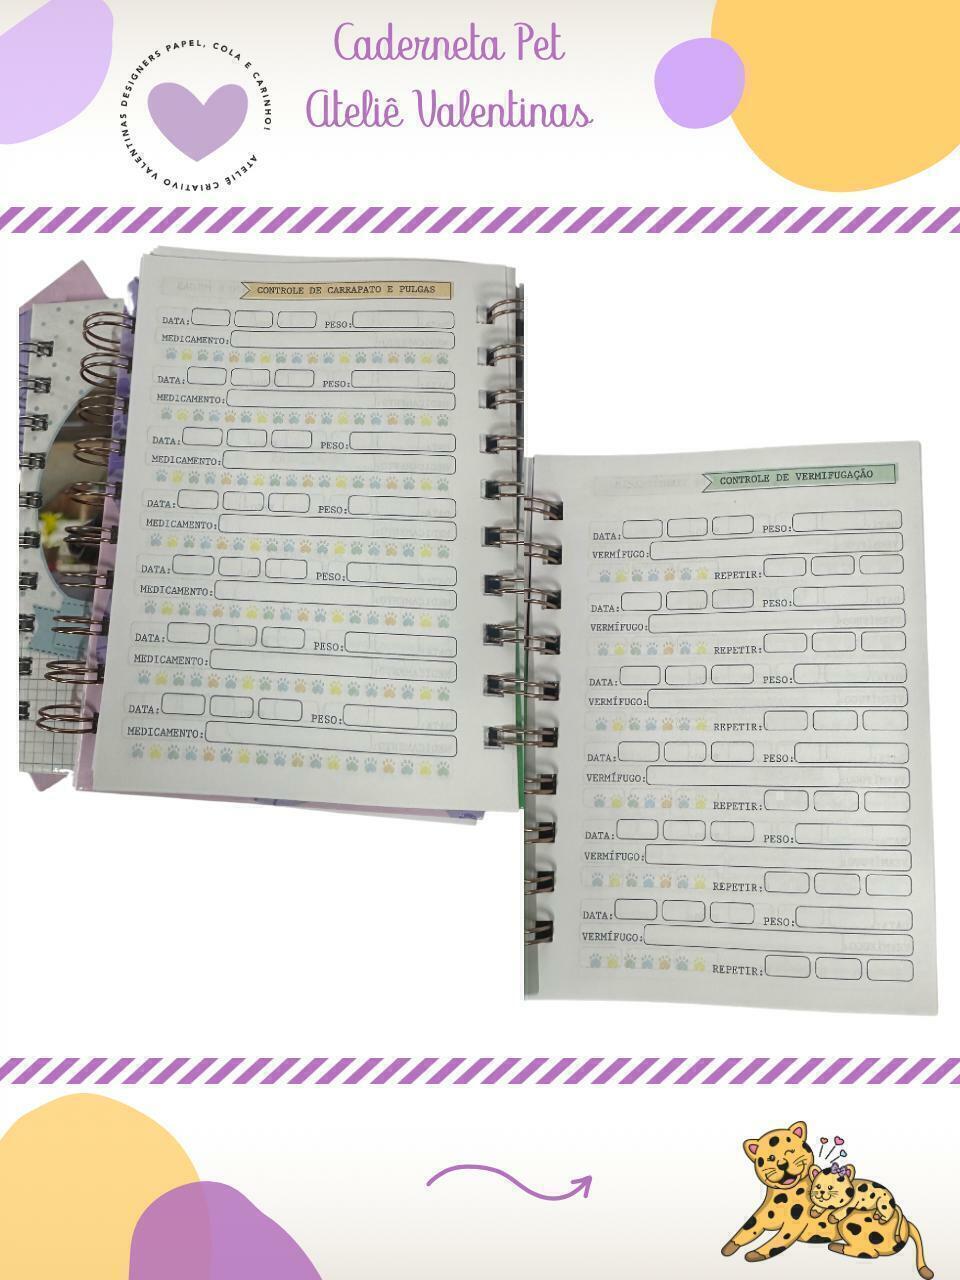 Caderneta Pet
Ateliê Valentinas
ATELIÊ CRIATIVO VALENTINAS DESIGNERS PAPEL, COLA E CARINHO!
CONTROLE DE CARRAPATO E PULGAS
DATA: PESO:
MEDICAMENTO:
DATA: PESO:
MEDICAMENTO:
DATA: PESO:
MEDICAMENTO:
DATA: PESO:
MEDICAMENTO:
DATA: PESO:
MEDICAMENTO:
DATA: PESO:
MEDICAMENTO:
DATA: PESO:
MEDICAMENTO:
CONTROLE DE VERMIFUGAÇÃO
DATA: PESO:
VERMÍFUGO:
REPETIR:
DATA: PESO:
VERMÍFUGO:
REPETIR:
DATA: PESO:
VERMÍFUGO:
REPETIR:
DATA: PESO:
VERMÍFUGO:
REPETIR:
DATA: PESO:
VERMÍFUGO:
REPETIR:
DATA: PESO:
VERMÍFUGO:
REPETIR: